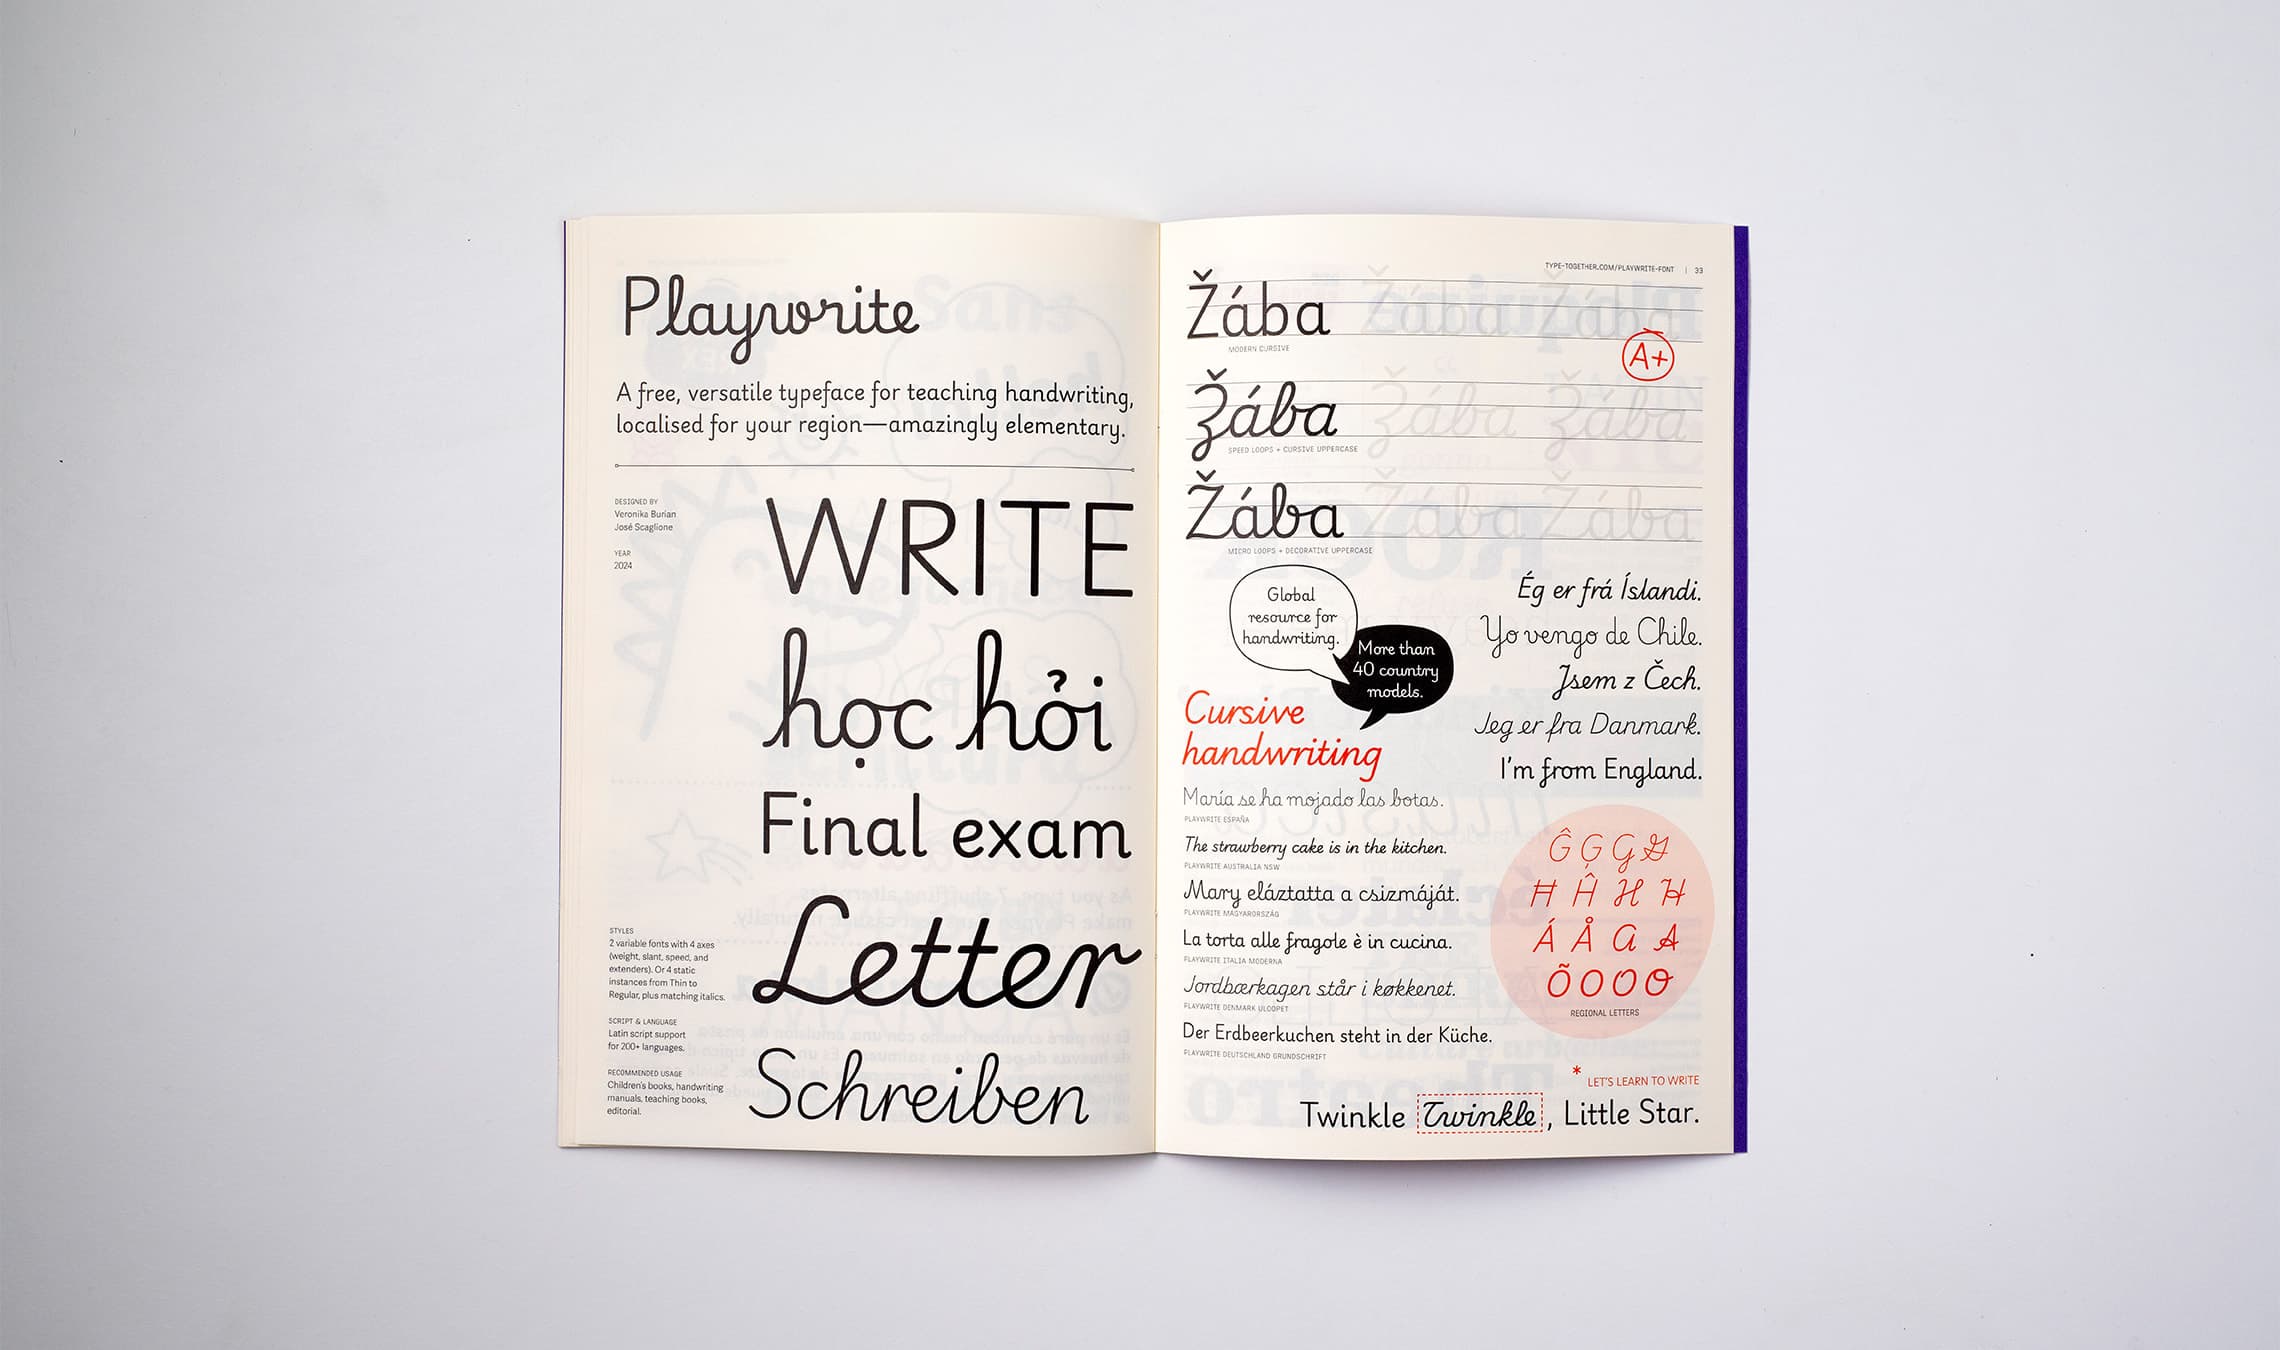 Playwrite
A free, versatile typeface for teaching handwriting,
localised for your region—amazingly elementary.
DESIGNED BY
Veronika Burian
José Scaglione
YEAR
2024
WRITE
học hỏi
Final exam
Letter
Schreiben
STYLES
2 variable fonts with 4 axes
(weight, slant, speed, and
extenders). Or 4 static
instances from Thin to
Regular, plus matching italics.
SCRIPT & LANGUAGE
Latin script support
for 200+ languages.
RECOMMENDED USAGE
Children's books, handwriting
manuals, teaching books,
editorial.
TYPE-TOGETHER.COM/PLAYWRITE-FONT | 33
Žába Žába Žába
MODERN CURSIVE
A+
Žába Žába Žába
SPEED LOOPS + CURSIVE UPPERCASE
Žába Žába Žába
MICRO LOOPS + DECORATIVE UPPERCASE
Global
resource for
handwriting.
More than
40 country
models.
Ég er frá Íslandi.
Yo vengo de Chile.
Jsem z Čech.
Jeg er fra Danmark.
I'm from England.
Cursive
handwriting
María se ha mojado las botas.
PLAYWRITE ESPAÑA
The strawberry cake is in the kitchen.
PLAYWRITE AUSTRALIA NSW
Mary eláztatta a csizmáját.
PLAYWRITE MAGYARORSZÁG
La torta alle fragole è in cucina.
PLAYWRITE ITALIA MODERNA
Jordbærkagen står i køkkenet.
PLAYWRITE DENMARK ULOOPET
Der Erdbeerkuchen steht in der Küche.
PLAYWRITE DEUTSCHLAND GRUNDSCHRIFT
Ĝ Ģ G G
Ħ Ĥ H H
Á Å A A
Õ O O O
REGIONAL LETTERS
* LET'S LEARN TO WRITE
Twinkle Twinkle, Little Star.